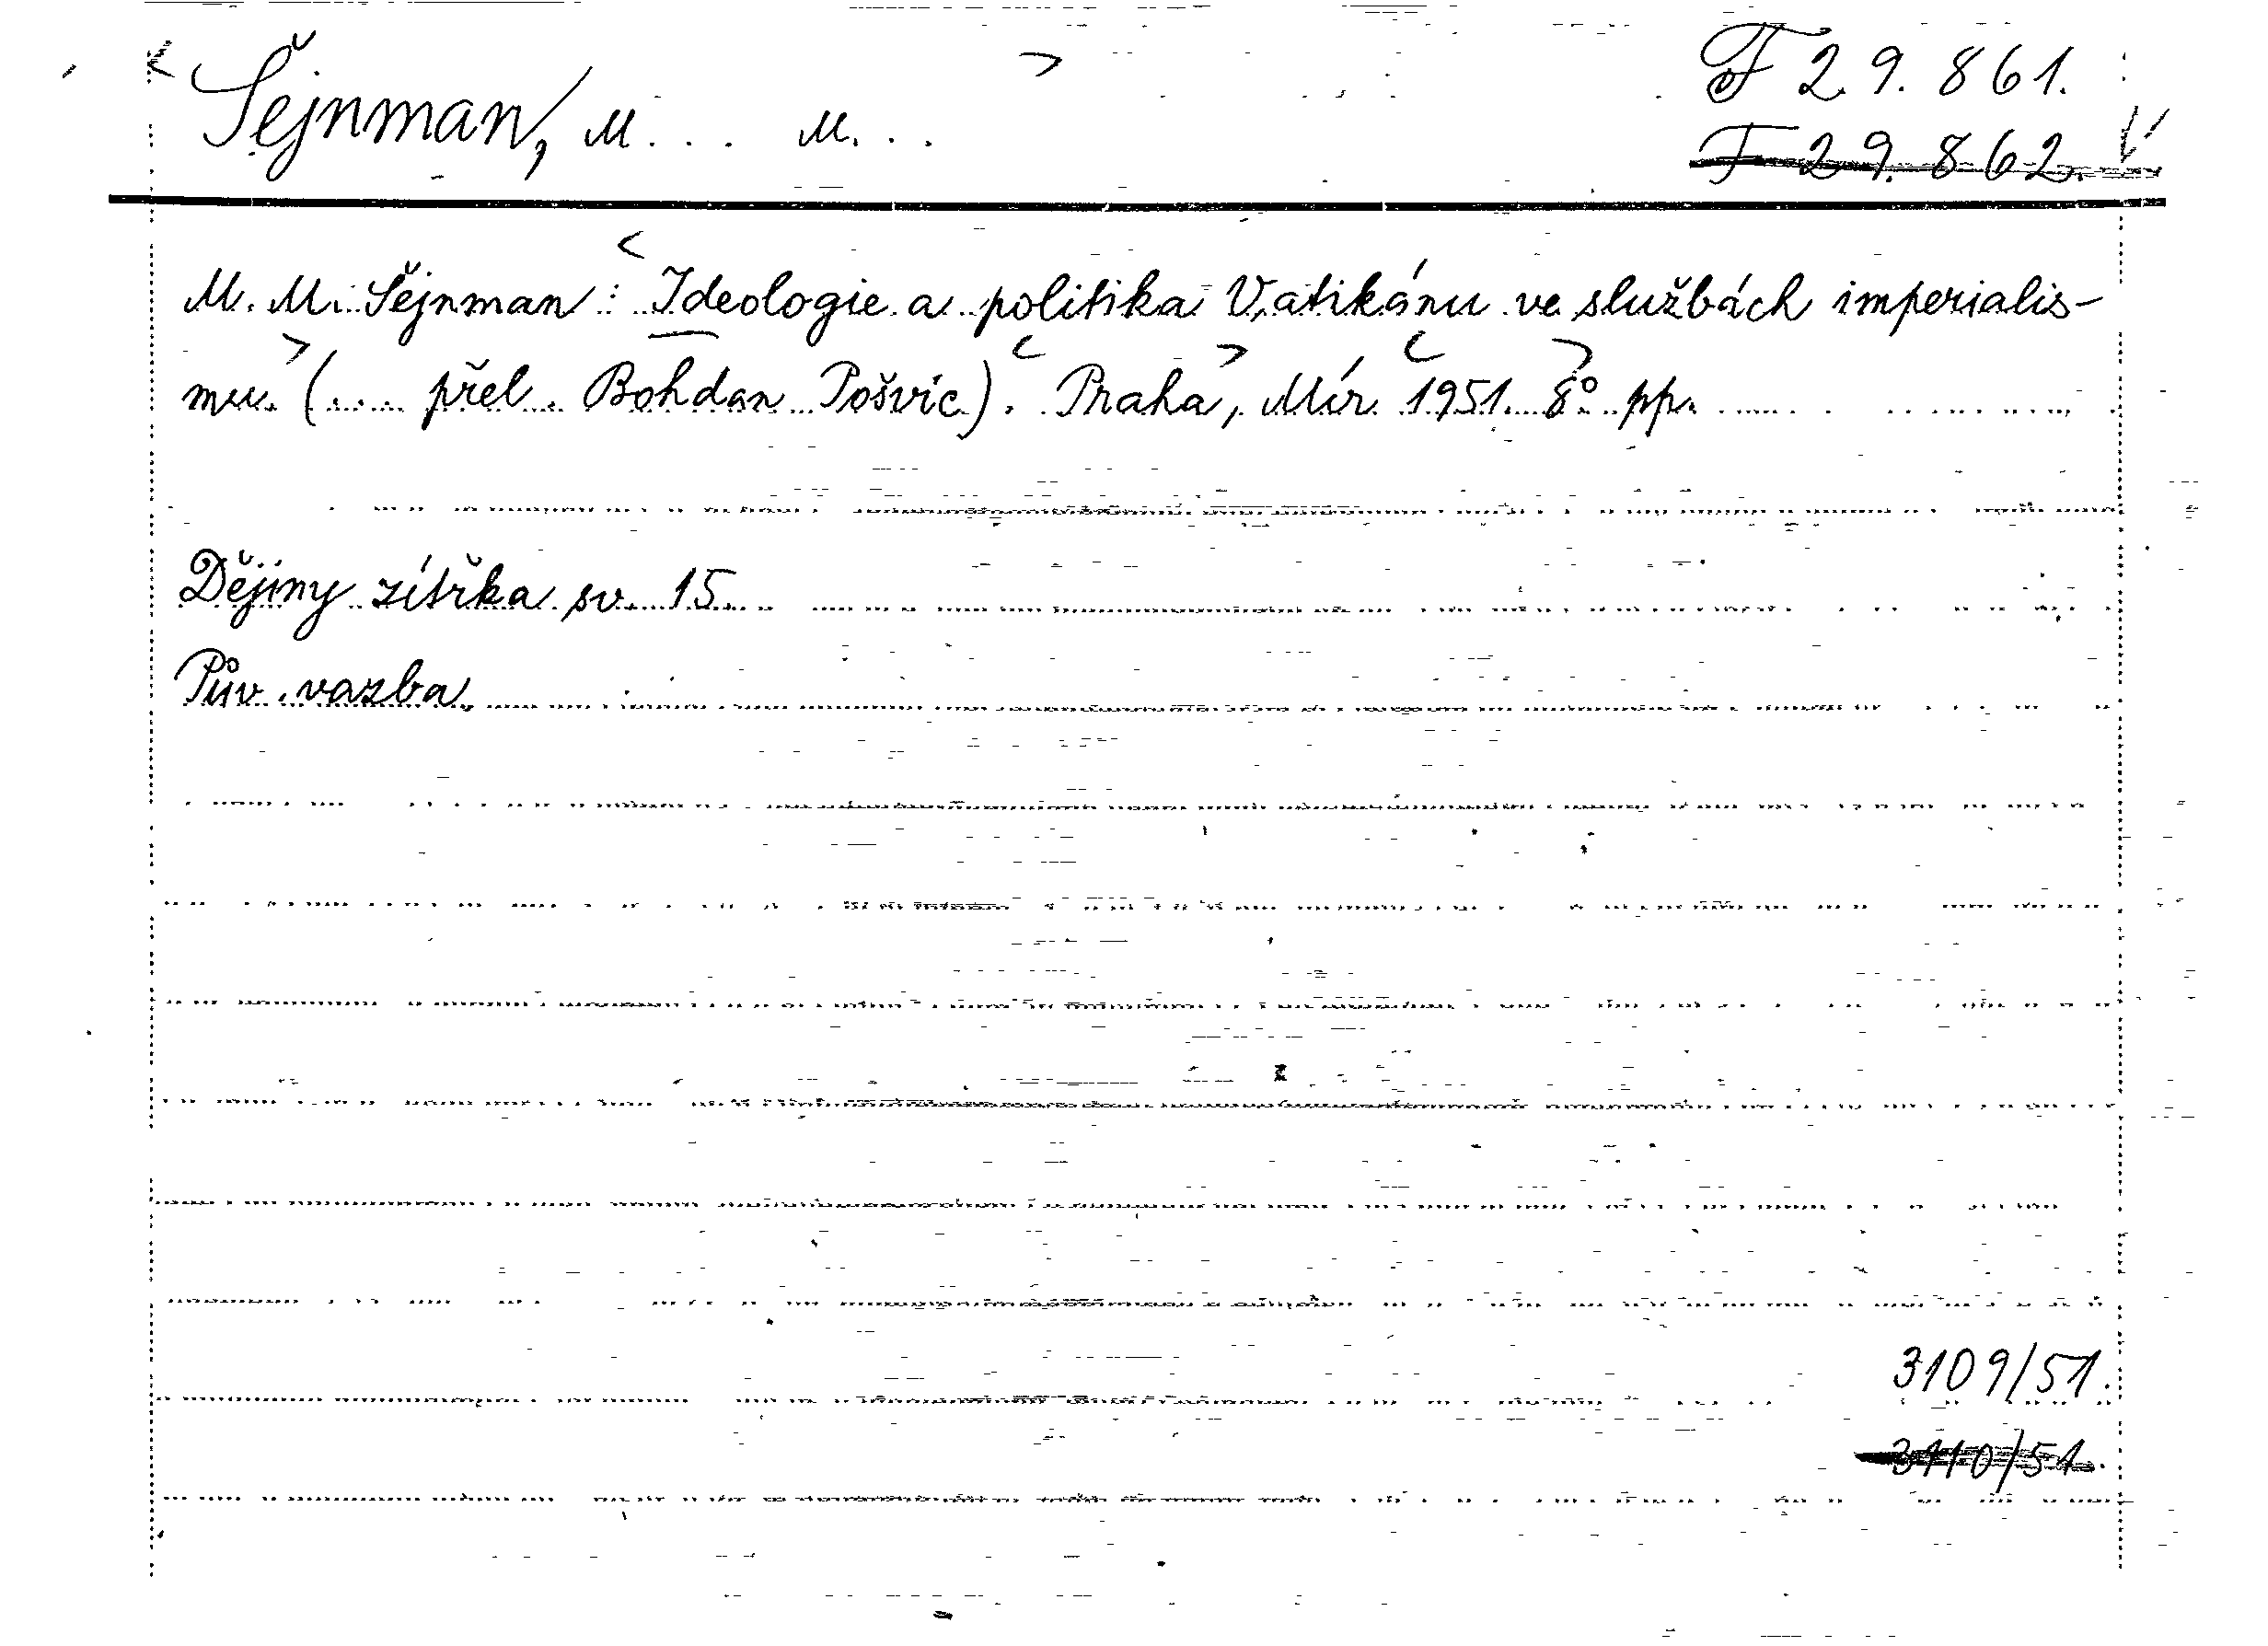 Šejnman, M... M...
F 29.861.
F 29.862.
M. M. Šejnman: Ideologie a politika Vatikánu ve službách imperialis-
mu. (... přel. Bohdan Pošvíc). Praha, Mír 1951. 8° pp.
Dějiny zítřka sv. 15.
Pův. vazba.
3109/51.
3110/51.